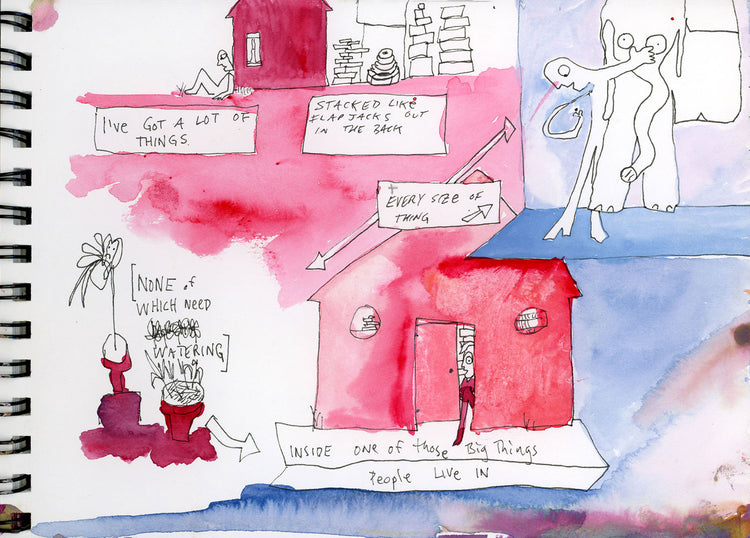 I'VE GOT A LOT OF
THINGS
STACKED LIKE
FLAPJACKS OUT
IN THE BACK
EVERY SIZE OF
THING
[NONE of
WHICH NEED
WATERING]
INSIDE ONE OF those Big Things
People Live IN